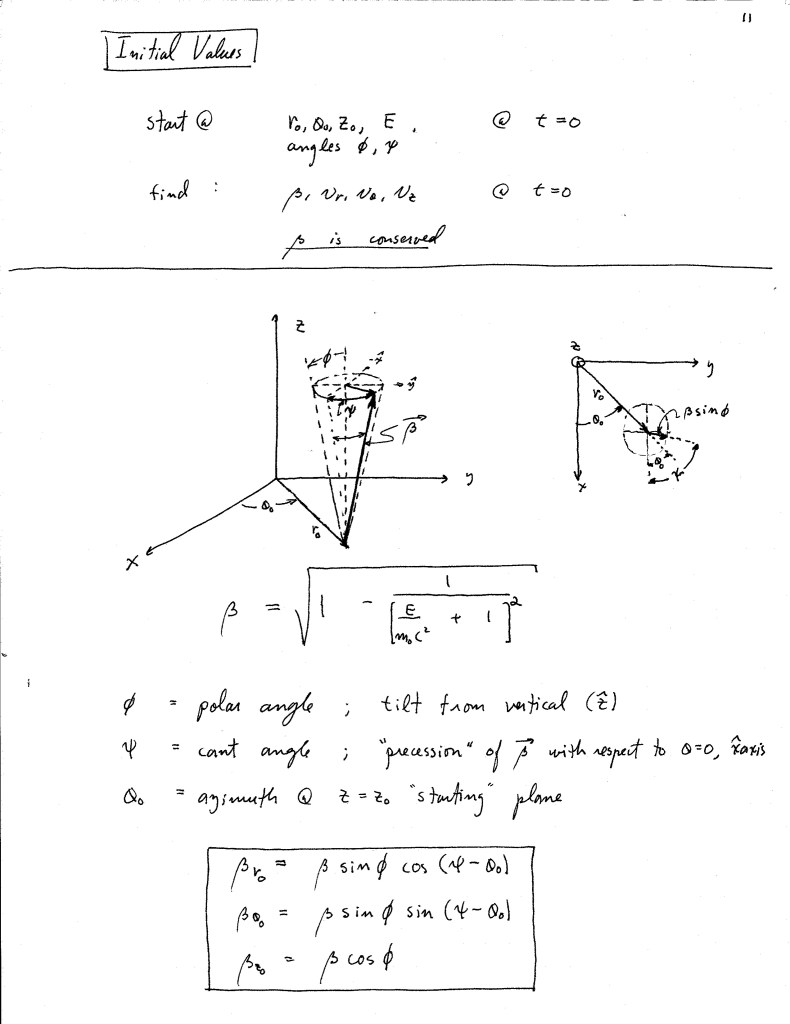 11
Initial Values
start @ r₀, θ₀, z₀, E, @ t = 0
angles φ, ψ
find : β, vᵣ, v_θ, v_z @ t = 0
β is conserved
z
φ
-x̂
→ŷ
ψ
β⃗
y
θ₀
r₀
x
z
y
r₀
θ₀
β sin φ
θ₀
ψ
x
β = √(1 - 1/[E/m₀c² + 1]²)
φ = polar angle ; tilt from vertical (ẑ)
ψ = cant angle ; "precession" of β⃗ with respect to θ=0, x̂ axis
θ₀ = azimuth @ z = z₀ "starting" plane
β_r₀ = β sin φ cos (ψ - θ₀)
β_θ₀ = β sin φ sin (ψ - θ₀)
β_z₀ = β cos φ